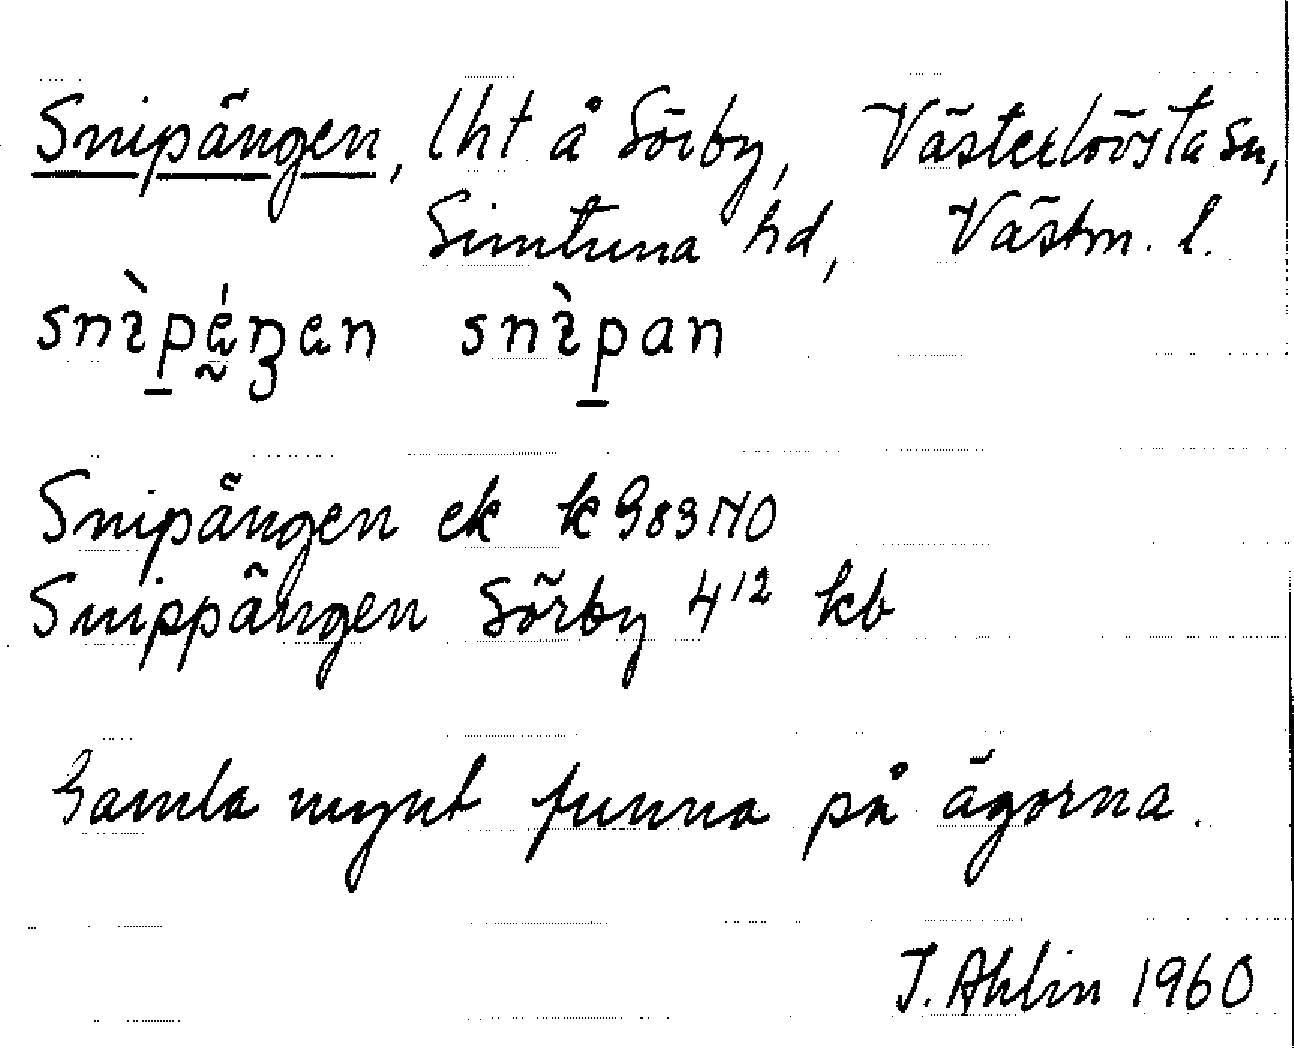 Snipängen, lht å Sörby, Västerlövsta sn,
Simtuna hd, Västm. l.
snìpäŋen snìpan
Snipängen ek k 983 NO
Snippängen Sörby 4¹² kb
Gamla mynt funna på ägorna.
J. Ahlin 1960